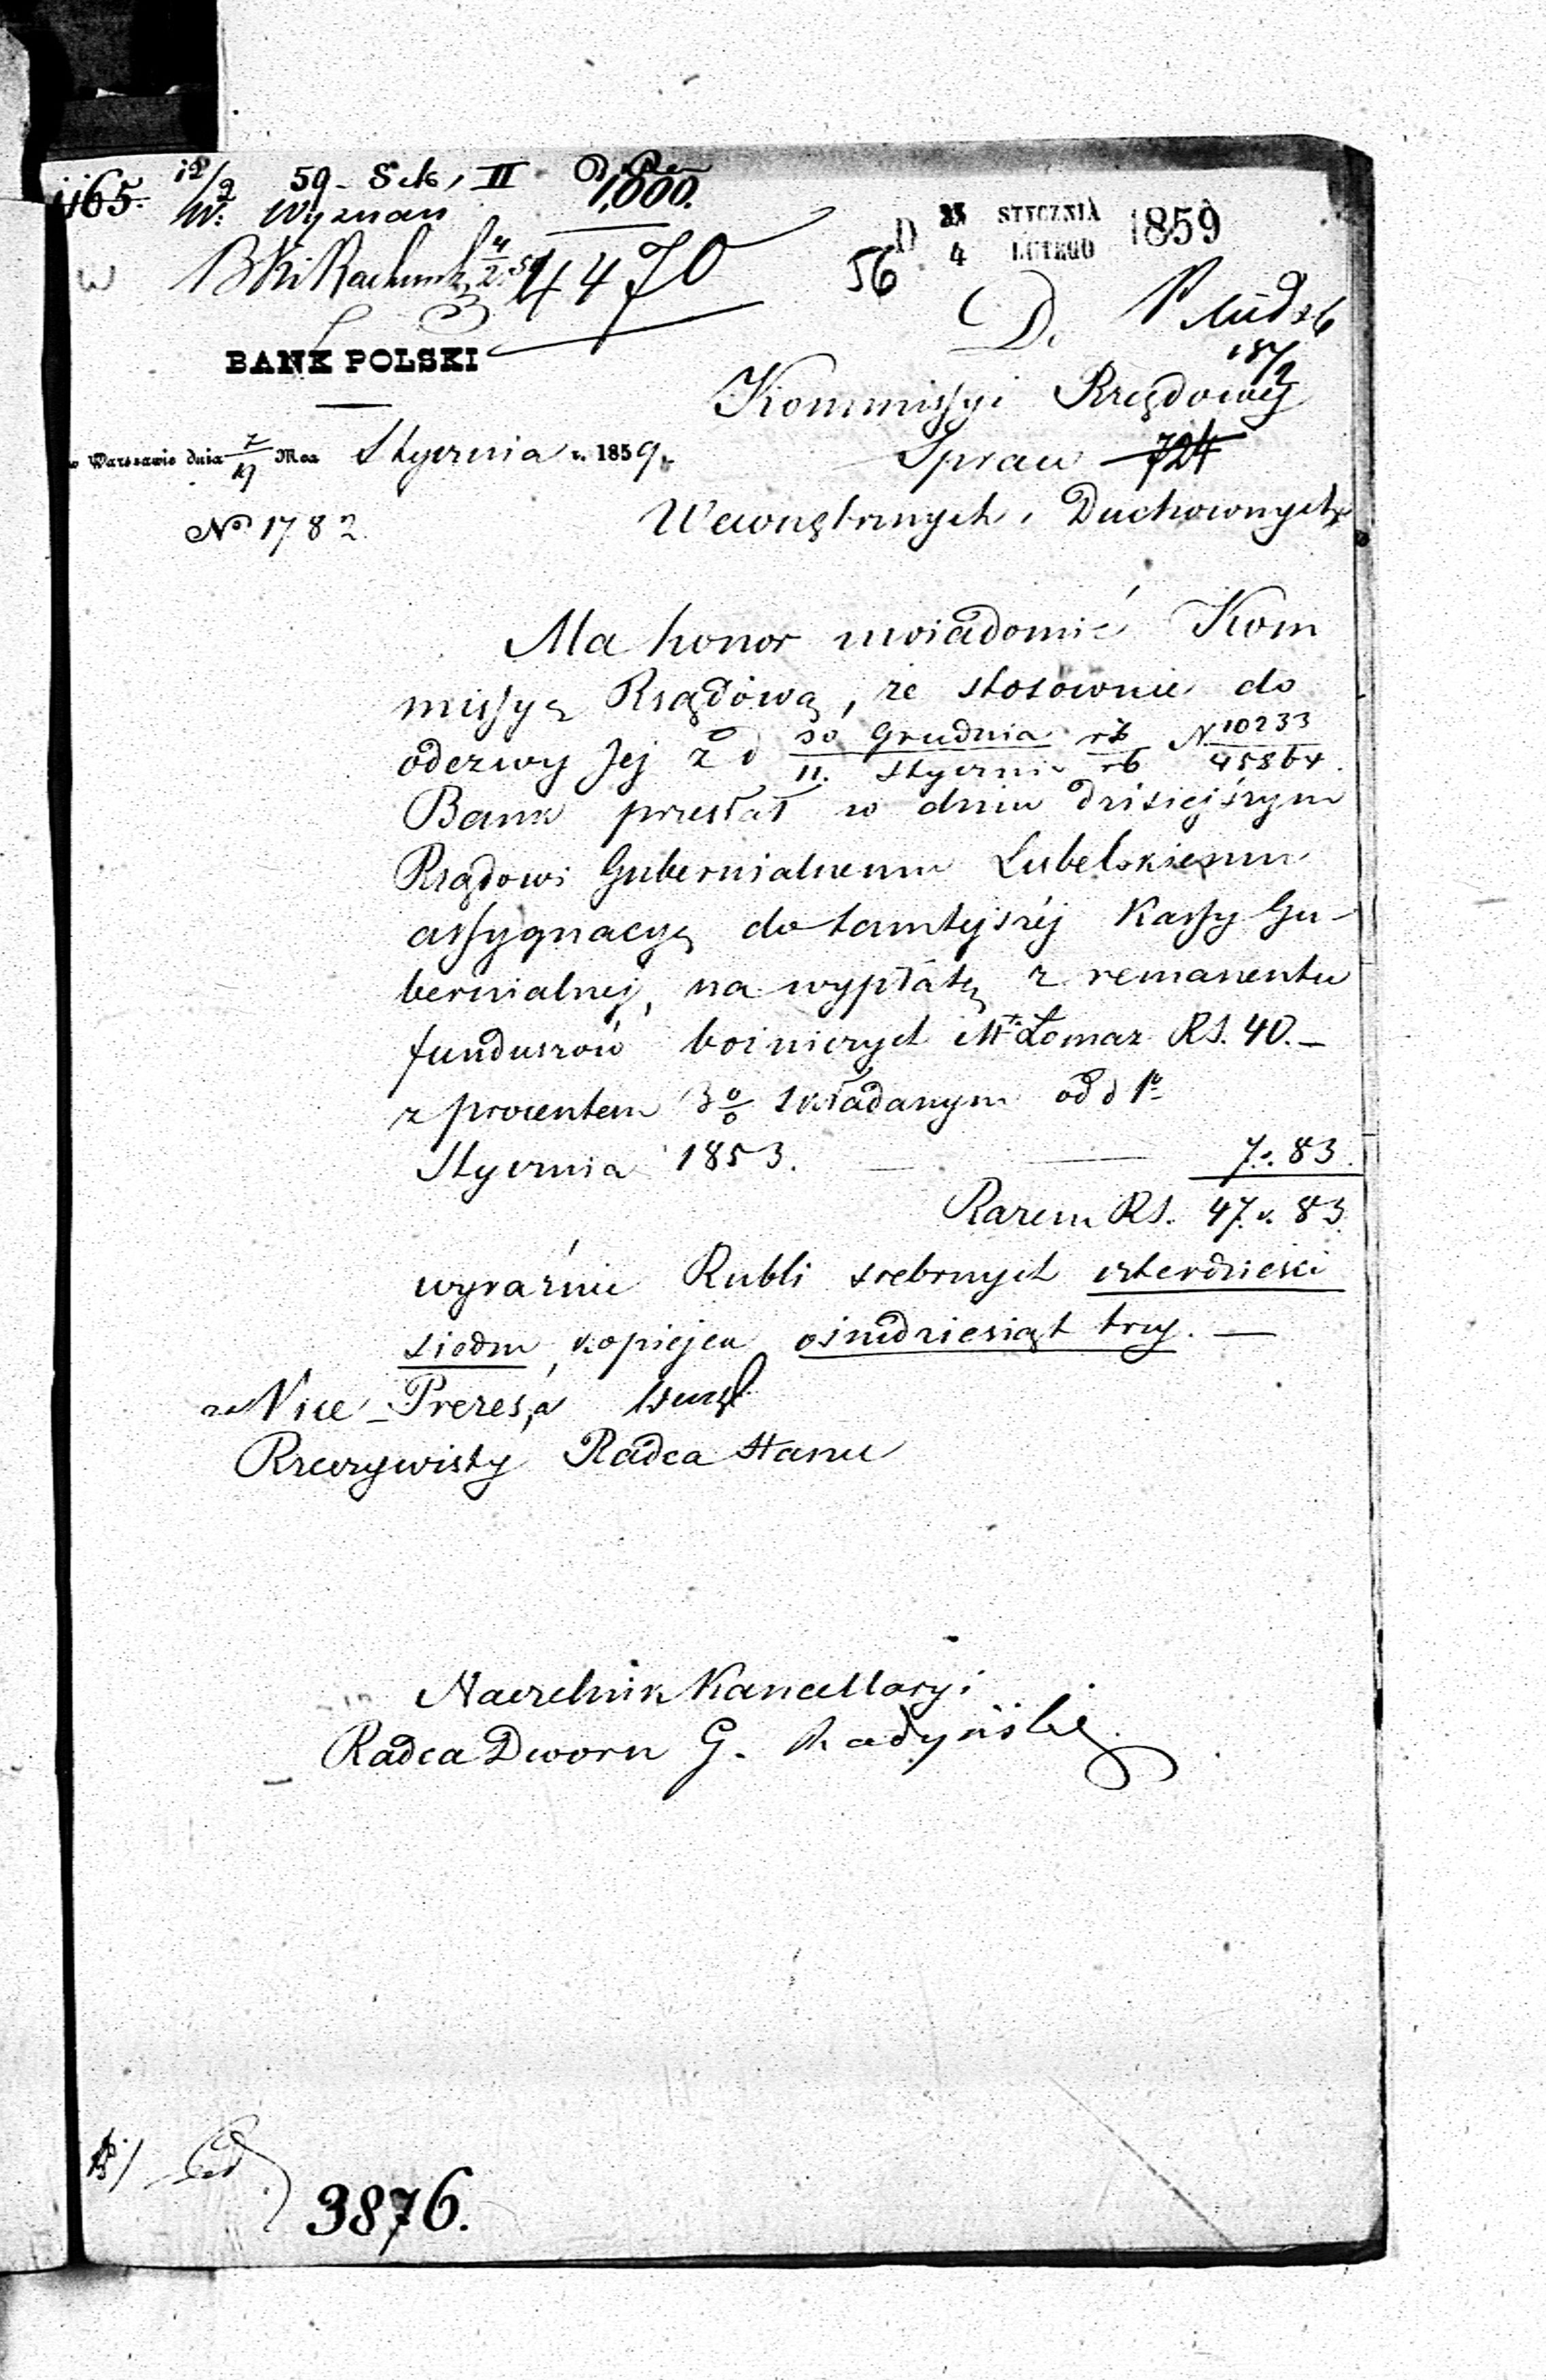 1165. 12/2 59 - Sek, II
W. Wyznań 1,000.
4470
D 23 STYCZNIA 1859
4 LUTEGO
56 D.
18/2
BANK POLSKI
Kommissyi Rządowéj
w Warszawie dnia 7/19 Mca Stycznia r. 1859.
Spraw 724
No 1782.
Wewnętrznych i Duchownych
Ma honor uwiadomić Kom
missyę Rządową, że stosownie do
odezwy Jej z d 30 Grudnia rz / 11. Stycznia rb N 10233/45864.
Bank przesłał w dniu dzisiejszym
Rządowi Gubernialnemu Lubelskiemu
assygnacyę do tamtejszéj Kassy Gu-
bernialnej, na wypłatę z remanentu
funduszów bożniczych Mta Łomaz RS. 40.-
z procentem 3 0/0 składanym od d 1o
Stycznia 1853. 7.. 83.
Razem RS. 47.. 83.
wyraźnie Rubli srebrnych czterdzieści
siedm, kopiejek ośmdziesiąt trzy. —
za Vice-Prezesa
Rzeczywisty Radca Stanu
Naczelnik Kancellaryi
Radca Dworu G. Radyński
3876.